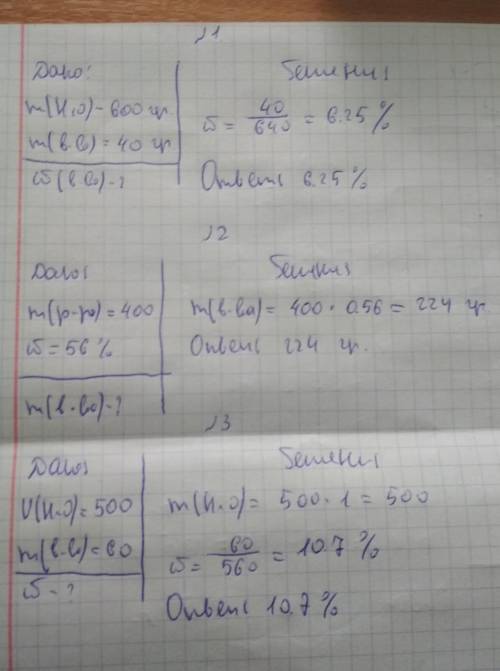 №1
Дано:
m(H2O) - 600 гр
m(в-во) = 40 гр
ω(в-во) - ?
Решение
ω = 40/640 = 6.25 %
Ответ: 6.25 %
№2
Дано:
m(р-ра) = 400
ω = 56 %
m(в-во) - ?
Решение
m(в-ва) = 400 · 0.56 = 224 гр
Ответ: 224 гр.
№3
Дано:
V(H2O) = 500
m(в-во) = 60
ω - ?
Решение
m(H2O) = 500 · 1 = 500
ω = 60/560 = 10.7 %
Ответ: 10.7 %